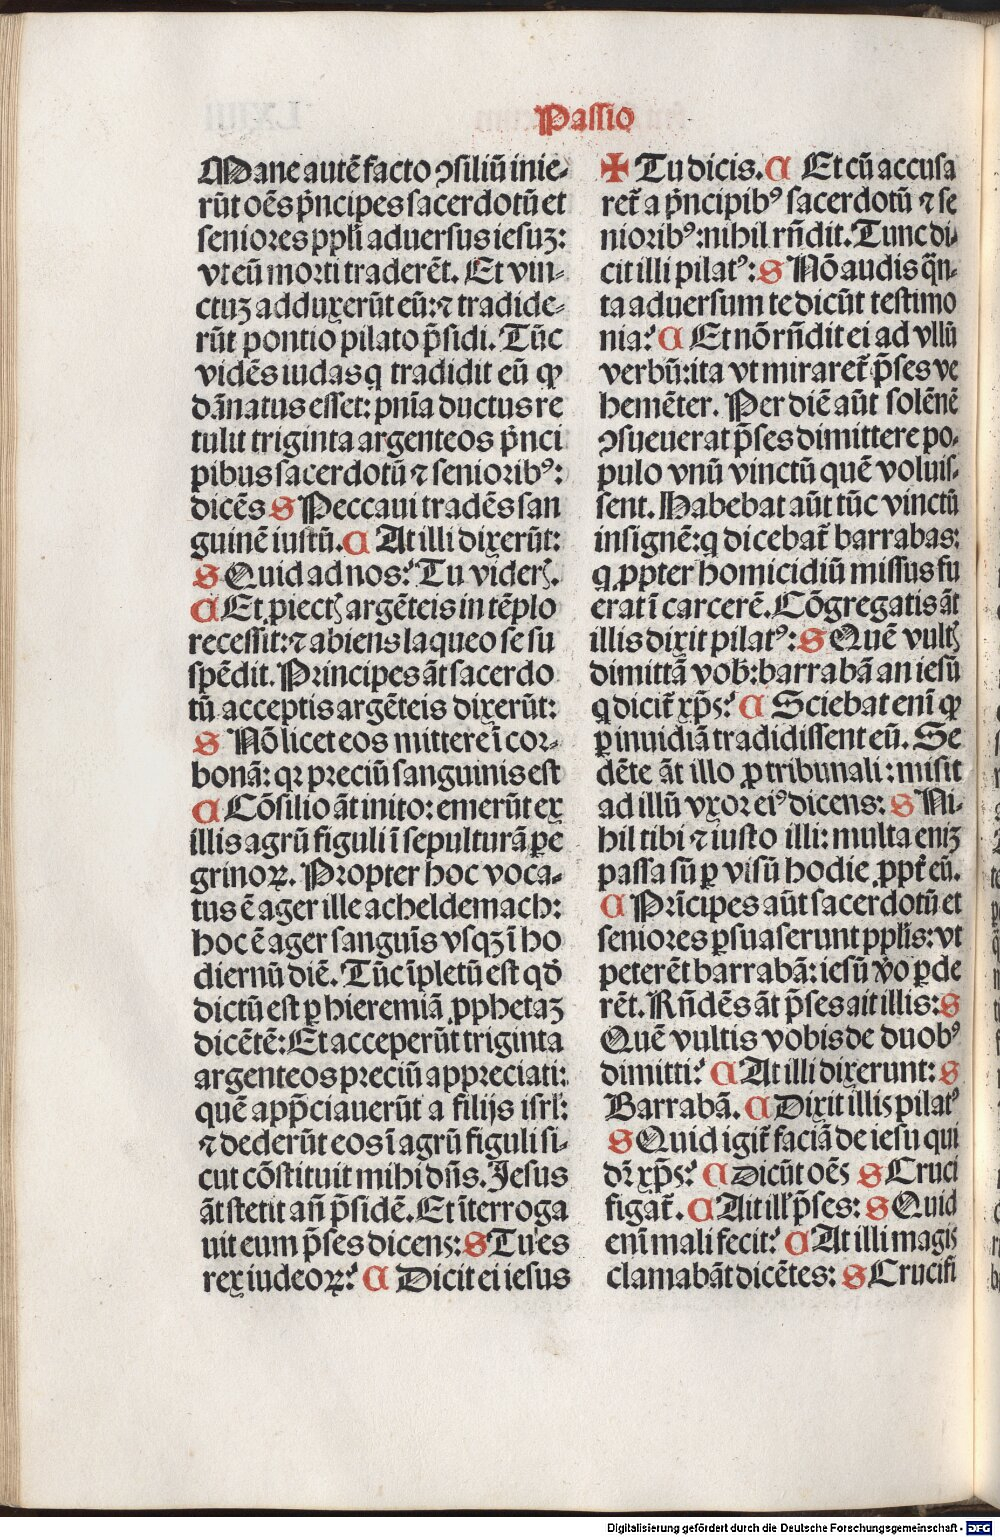 Passio
Mane autē facto ꝯsiliū inie⸗
rūt oēs p̄ncipes sacerdotū et
seniores ppl̄i aduersus iesuꝫ:
vt eū morti traderēt. Et vin⸗
ctuꝫ adduxerūt eū: ⁊ tradide⸗
rūt pontio pilato p̄sidi. Tūc
vidēs iudas q tradidit eū ꝙ
dānatus esset: pn̄ia ductus re
tulit triginta argenteos p̄nci
pibus sacerdotū ⁊ seniorib⁹:
dicēs S Peccaui tradēs san
guinē iustū. C At illi dixerūt:
S Quid ad nos? Tu videꝝ.
C Et ꝓiectꝭ argēteis in tēplo
recessit: ⁊ abiens laqueo se su
spēdit. Principes āt sacerdo
tū acceptis argēteis dixerūt:
S Nō licet eos mittere ī cor⸗
bonā: qꝛ preciū sanguinis est
C Cōsilio āt inito: emerūt ex
illis agrū figuli ī sepulturā ꝑe
grinoꝝ. Propter hoc voca⸗
tus ē ager ille acheldemach:
hoc ē ager sanguīs vsqꝫ ī ho
diernū diē. Tūc īpletū est qd̄
dictū est ꝑ hieremiā ꝓphetaꝫ
dicētē: Et acceperūt triginta
argenteos preciū appreciati:
quē app̄ciauerūt a filijs isrl̄:
⁊ dederūt eos ī agrū figuli si⸗
cut cōstituit mihi dn̄s. Jesus
āt stetit añ p̄sidē. Et īterroga
uit eum p̄ses dicens: S Tu es
rex iudeoꝝ? C Dicit ei iesus
✠ Tu dicis. C Et cū accusa
ret̄ a p̄ncipib⁹ sacerdotū ⁊ se
niorib⁹: nihil rn̄dit. Tunc di⸗
cit illi pilat⁹: S Nō audis q̄n⸗
ta aduersum te dicūt testimo
nia? C Et nō rn̄dit ei ad vllū
verbū: ita vt miraret̄ p̄ses ve
hemēter. Per diē aūt solēnē
ꝯsueuerat p̄ses dimittere po⸗
pulo vnū vinctū quē voluis⸗
sent. Habebat aūt tūc vinctū
insignē: q dicebat̄ barrabas:
q ꝓpter homicidiū missus fu
erat ī carcerē. Cōgregatis āt
illis dixit pilat⁹: S Quē vultꝭ
dimittā vob̄: barrabā an iesū
q dicit̄ xp̄s? C Sciebat enī ꝙ
ꝑ inuidiā tradidissent eū. Se
dēte āt illo ꝓ tribunali: misit
ad illū vxor ei⁹ dicens: S Ni⸗
hil tibi ⁊ iusto illi: multa eniꝫ
passa sū ꝑ visū hodie ꝓpt̄ eū.
C Prīcipes aūt sacerdotū et
seniores ꝑsuaserunt ppl̄is: vt
peterēt barrabā: iesū v̄o ꝑde
rēt. Rn̄dēs āt p̄ses ait illis: S
Quē vultis vobis de duob⁹
dimitti? C At illi dixerunt: S
Barrabā. C Dixit illis pilat⁹
S Quid igit̄ faciā de iesu qui
dr̄ xp̄s? C Dicūt oēs S Cruci
figat̄. C Ait ill̄ p̄ses: S Quid
enī mali fecit? C At illi magis
clamabāt dicētes: S Crucifi
Digitalisierung gefördert durch die Deutsche Forschungsgemeinschaft - DFG